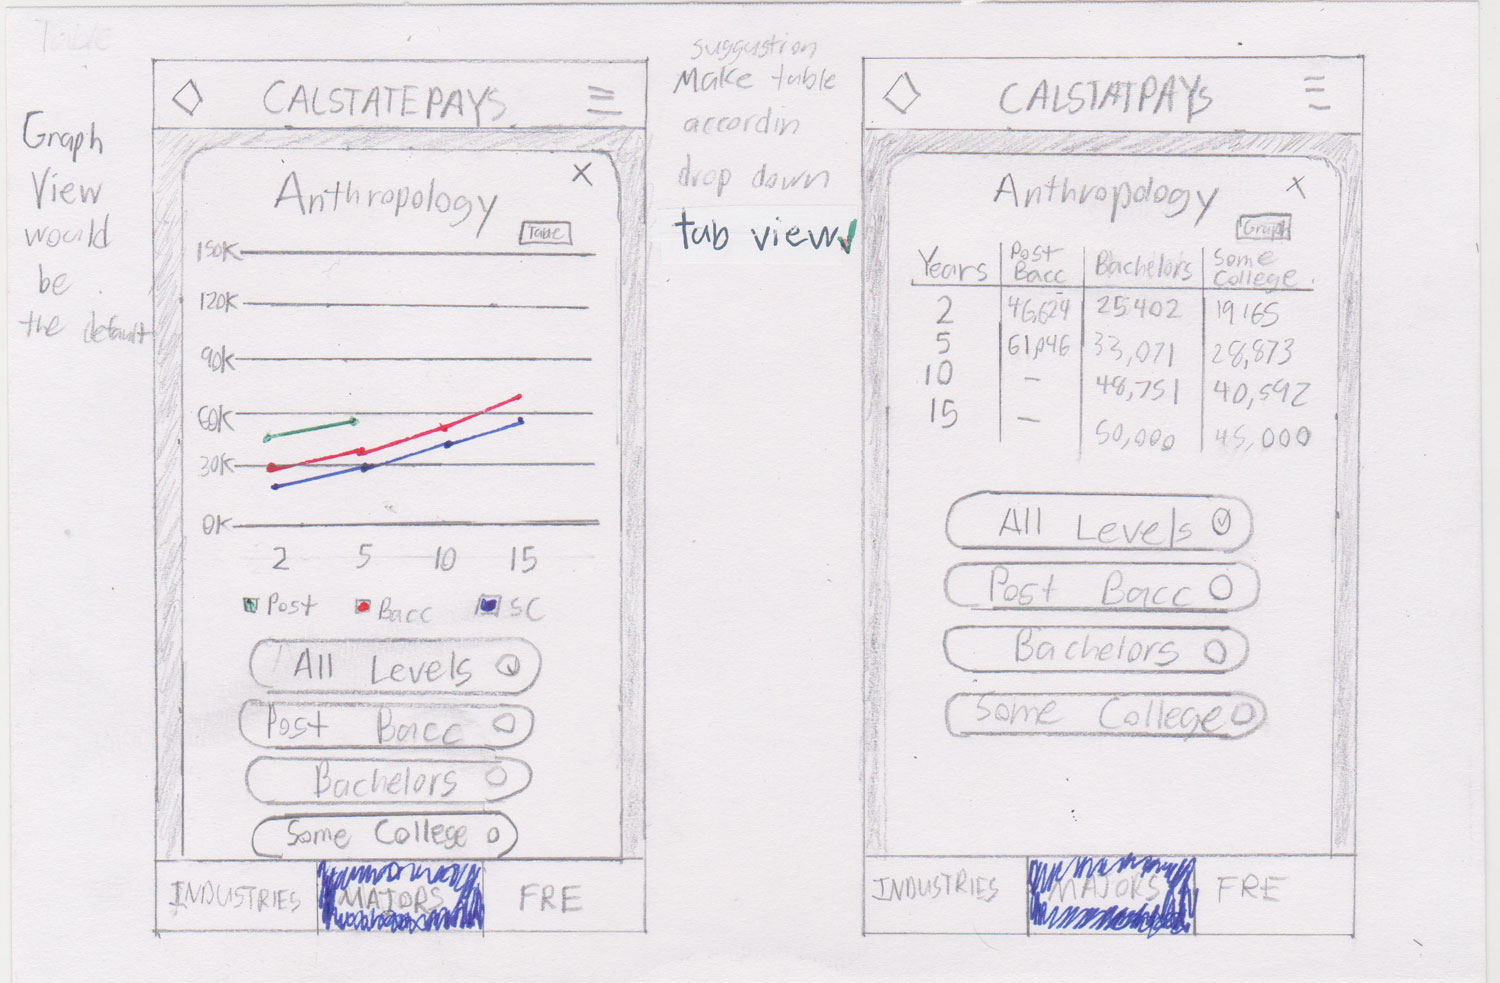 Table
Graph
View
would
be
the default
CALSTATEPAYS
Anthropology
X
Table
150K
120K
90K
60K
30K
0K
2 5 10 15
Post Bacc SC
All Levels
Post Bacc
Bachelors
Some College
INDUSTRIES MAJORS FRE
suggustion
Make table
accordin
drop down
tab view
CALSTATPAYS
Anthropology
X
Graph
Years Post Bacc Bachelors Some College
2 46624 25402 19165
5 61,946 33,071 28,873
10 - 48,751 40,592
15 - 50,000 45,000
All Levels
Post Bacc
Bachelors
Some College
INDUSTRIES MAJORS FRE